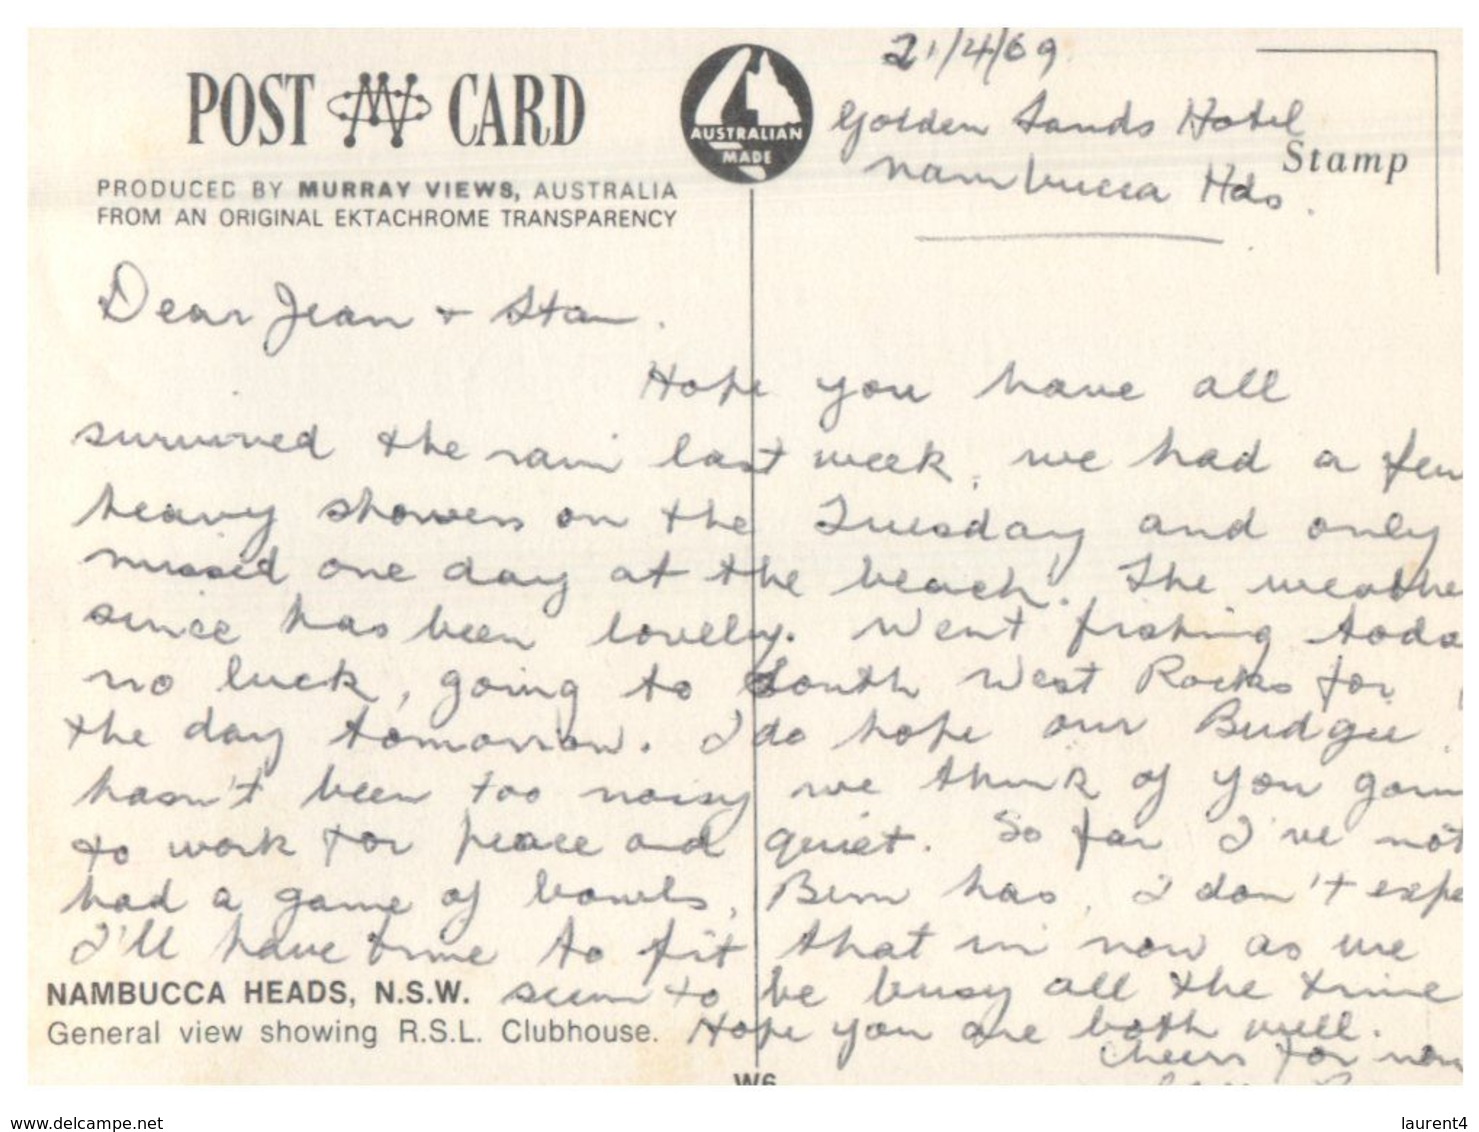 21/4/69
POST CARD
Golden Sands Hotel
Stamp
AUSTRALIAN
MADE
Nambucca Hds.
PRODUCED BY MURRAY VIEWS, AUSTRALIA
FROM AN ORIGINAL EKTACHROME TRANSPARENCY
Dear Jean + Stan.
Hope you have all
survived the rain last week, we had a few
heavy showers on the Tuesday and only
missed one day at the beach. The weathe
since has been lovely. Went fishing toda
no luck, going to South West Rocks for
the day tomorrow. I do hope our Budgie
hasn't been too noisy we think of you goin
to work for peace and quiet. So far I've not
had a game of bowls, Bim has, I don't expe
I'll have time to fit that in now as we
NAMBUCCA HEADS, N.S.W. seem to be busy all the time
General view showing R.S.L. Clubhouse. Hope you are both well.
Cheers for now
W6
www.delcampe.net
laurent4